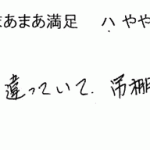 まあまあ満足 ハ やや
違っていて、吊棚